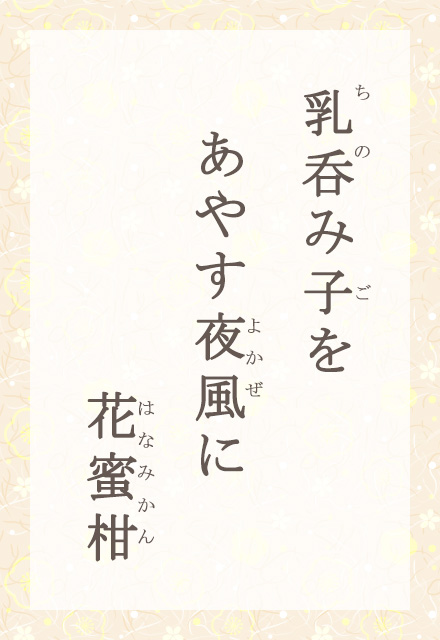 乳呑み子を
ちのご
あやす夜風に
よかぜ
花蜜柑
はなみかん